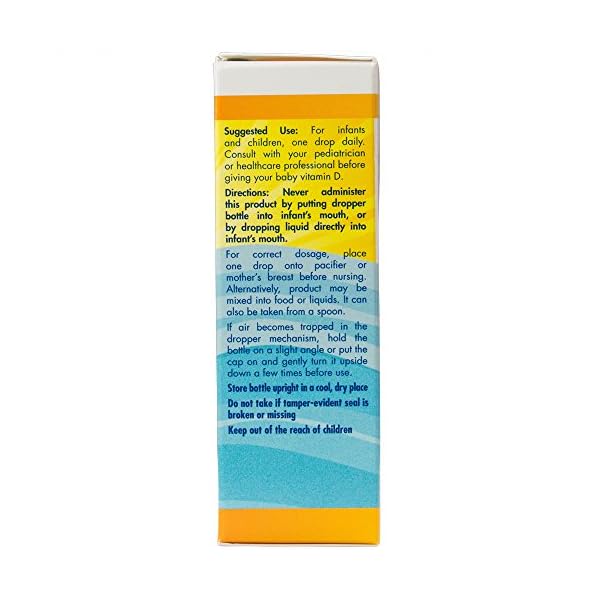 Suggested Use: For infants
and children, one drop daily.
Consult with your pediatrician
or healthcare professional before
giving your baby vitamin D.
Directions: Never administer
this product by putting dropper
bottle into infant's mouth, or
by dropping liquid directly into
infant's mouth.
For correct dosage, place
one drop onto pacifier or
mother's breast before nursing.
Alternatively, product may be
mixed into food or liquids. It can
also be taken from a spoon.
If air becomes trapped in the
dropper mechanism, hold the
bottle on a slight angle or put the
cap on and gently turn it upside
down a few times before use.
Store bottle upright in a cool, dry place
Do not take if tamper-evident seal is
broken or missing
Keep out of the reach of children